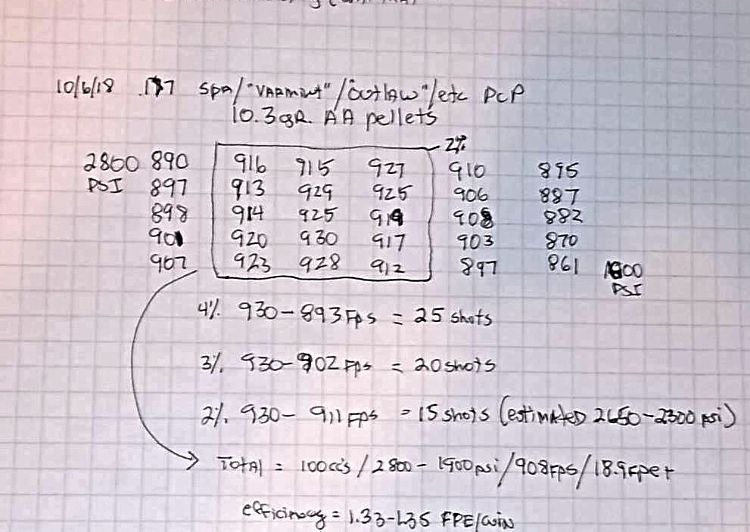 10/6/18 .177 SPA/"VARMINT"/"OUTLAW"/etc PCP
10.3gR. AA pellets
2%
2800 890 916 915 927 910 895
PSI 897 913 929 925 906 887
898 914 925 919 908 882
901 920 930 917 903 870
907 923 928 912 897 861 1900
PSI
4% 930-893 Fps = 25 shots
3% 930-902 Fps = 20 shots
2% 930-911 Fps = 15 shots (estimated 2650-2300 psi)
Total = 100cc's / 2800-1900psi / 908FPS / 18.9Fpe+
efficincey = 1.33-1.35 FPE/cuin